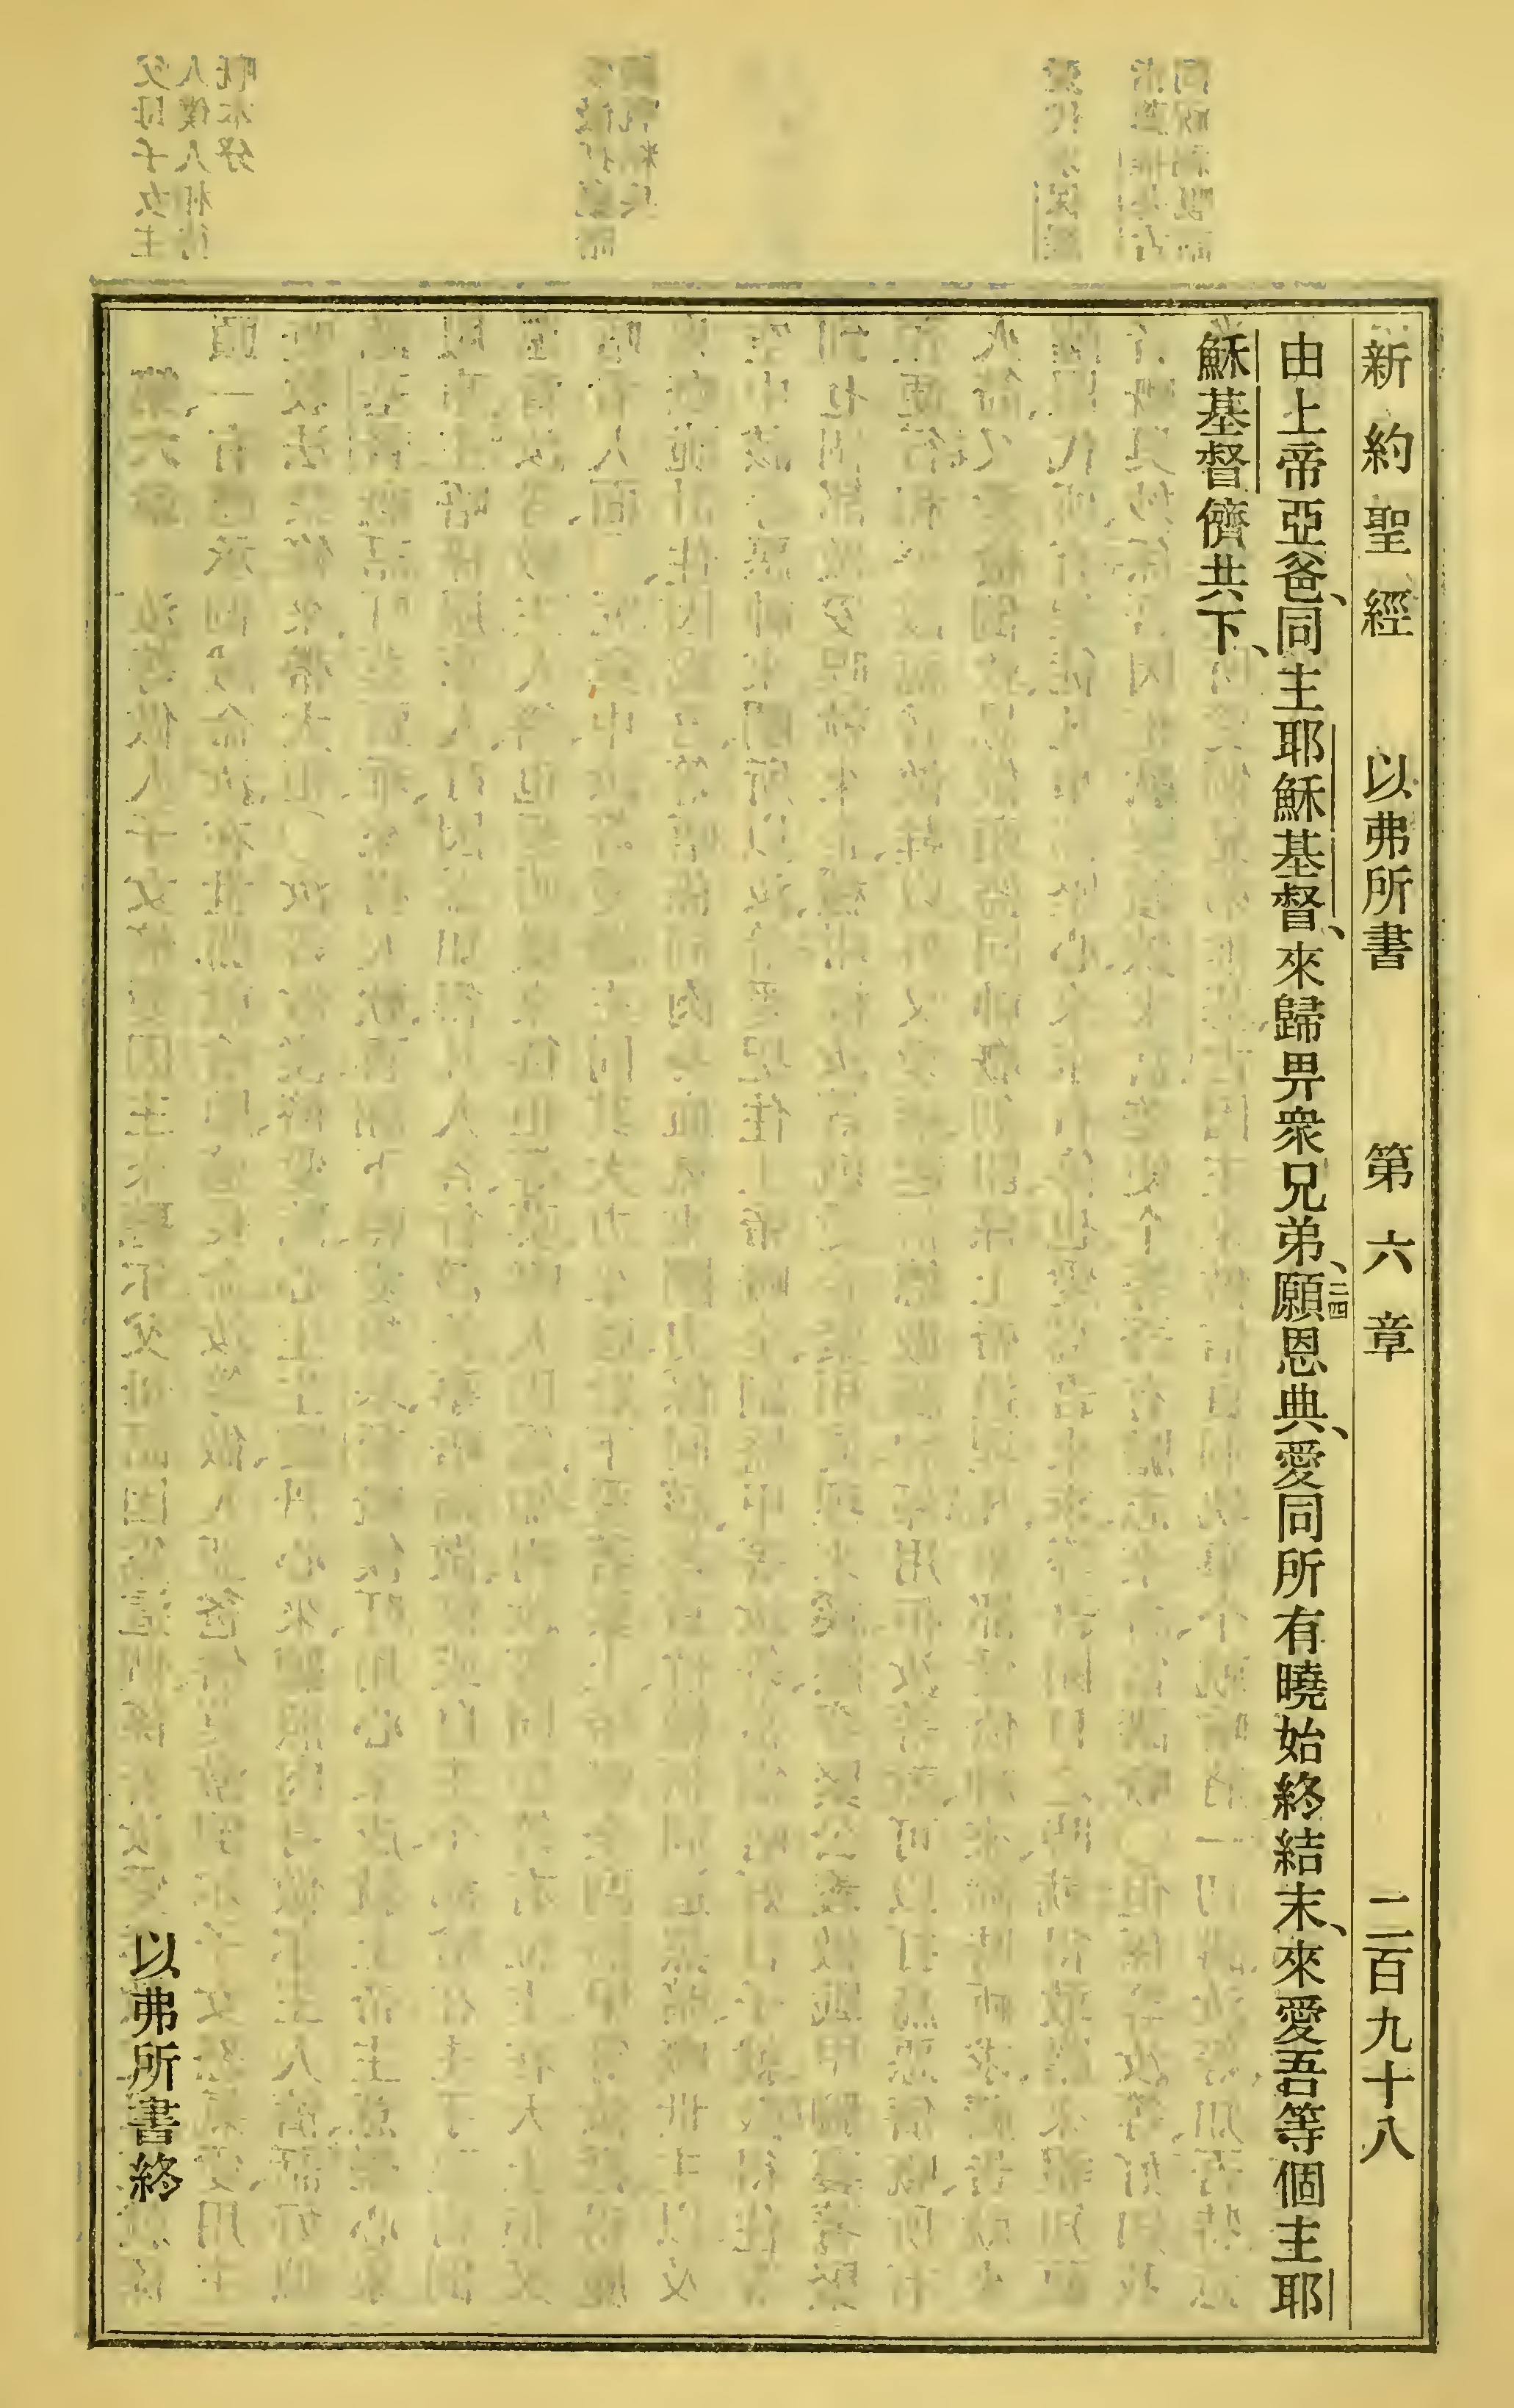 新約聖經　以弗所書　第六章　二百九十八
由上帝亞爸、同主耶穌基督、來歸畀衆兄弟、二四願恩典、愛同所有曉始終結末、來愛吾等個主耶
穌基督儕共下、
以弗所書終